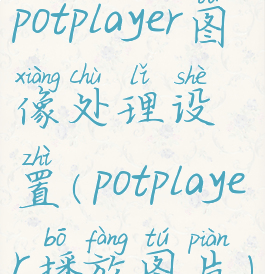 potplayer图
xiàng chù lǐ shè
像处理设
zhì
置(potplaye
bō fàng tú piàn
r播放图片)